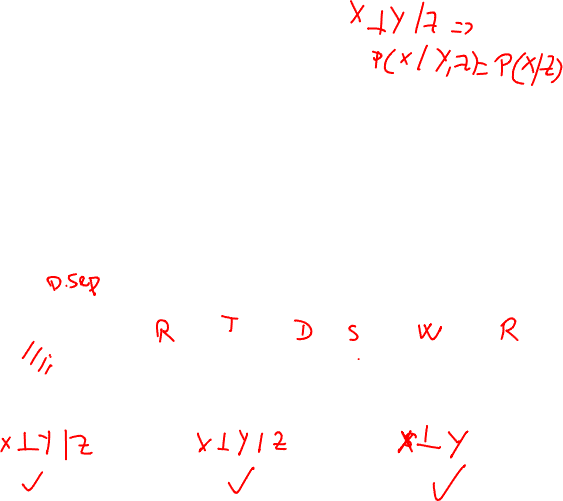 X ⊥ Y / Z =>
P(X / Y, Z) = P(X/Z)
D.Sep
R T D S W R
X ⊥ Y | Z X ⊥ Y | Z X ⊥ Y
✓ ✓ ✓